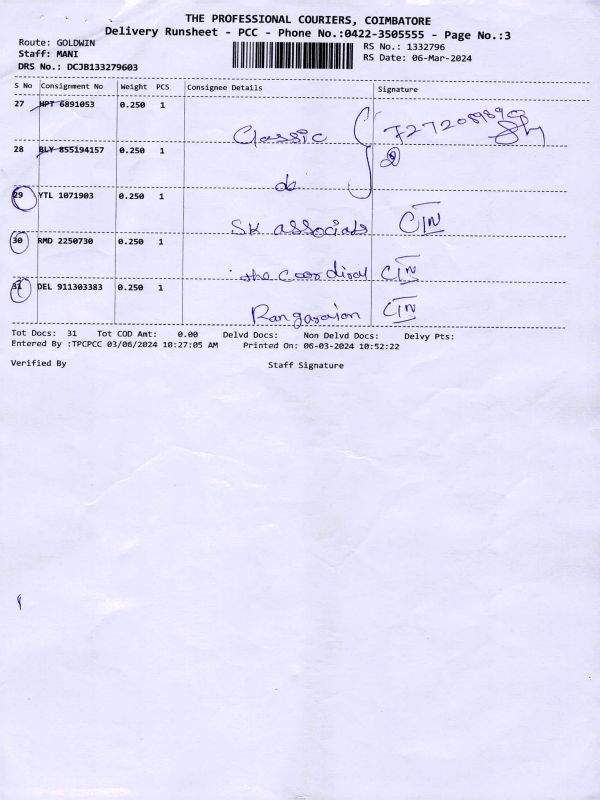 THE PROFESSIONAL COURIERS, COIMBATORE
Delivery Runsheet - PCC - Phone No.:0422-3505555 - Page No.:3
Route: GOLDWIN
Staff: MANI
DRS No.: DCJB133279603
RS No.: 1332796
RS Date: 06-Mar-2024
S No Consignment No Weight PCS Consignee Details Signature
27 HPT 6891053 0.250 1
Classic
28 BLY 855194157 0.250 1
do
29 YTL 1071903 0.250 1
SK associats CIN
30 RMD 2250730 0.250 1
the CIN
31 DEL 911303383 0.250 1
Rangarajan CIN
Tot Docs: 31 Tot COD Amt: 0.00 Delvd Docs: Non Delvd Docs: Delvy Pts:
Entered By :TPCPCC 03/06/2024 10:27:05 AM Printed On: 06-03-2024 10:52:22
Verified By Staff Signature